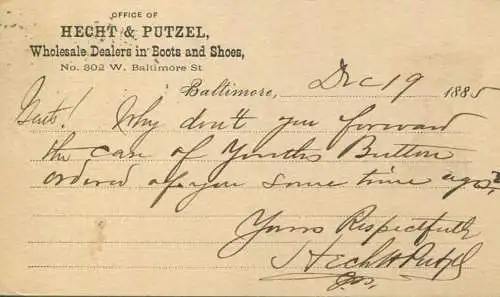 OFFICE OF
HECHT & PUTZEL,
Wholesale Dealers in Boots and Shoes,
No. 302 W. Baltimore St.
Baltimore, Dec 19 1885
Gents! Why don't you forward
the case of Youths Button
ordered of you some time ago?
Yours Respectfully
Hecht & Putzel